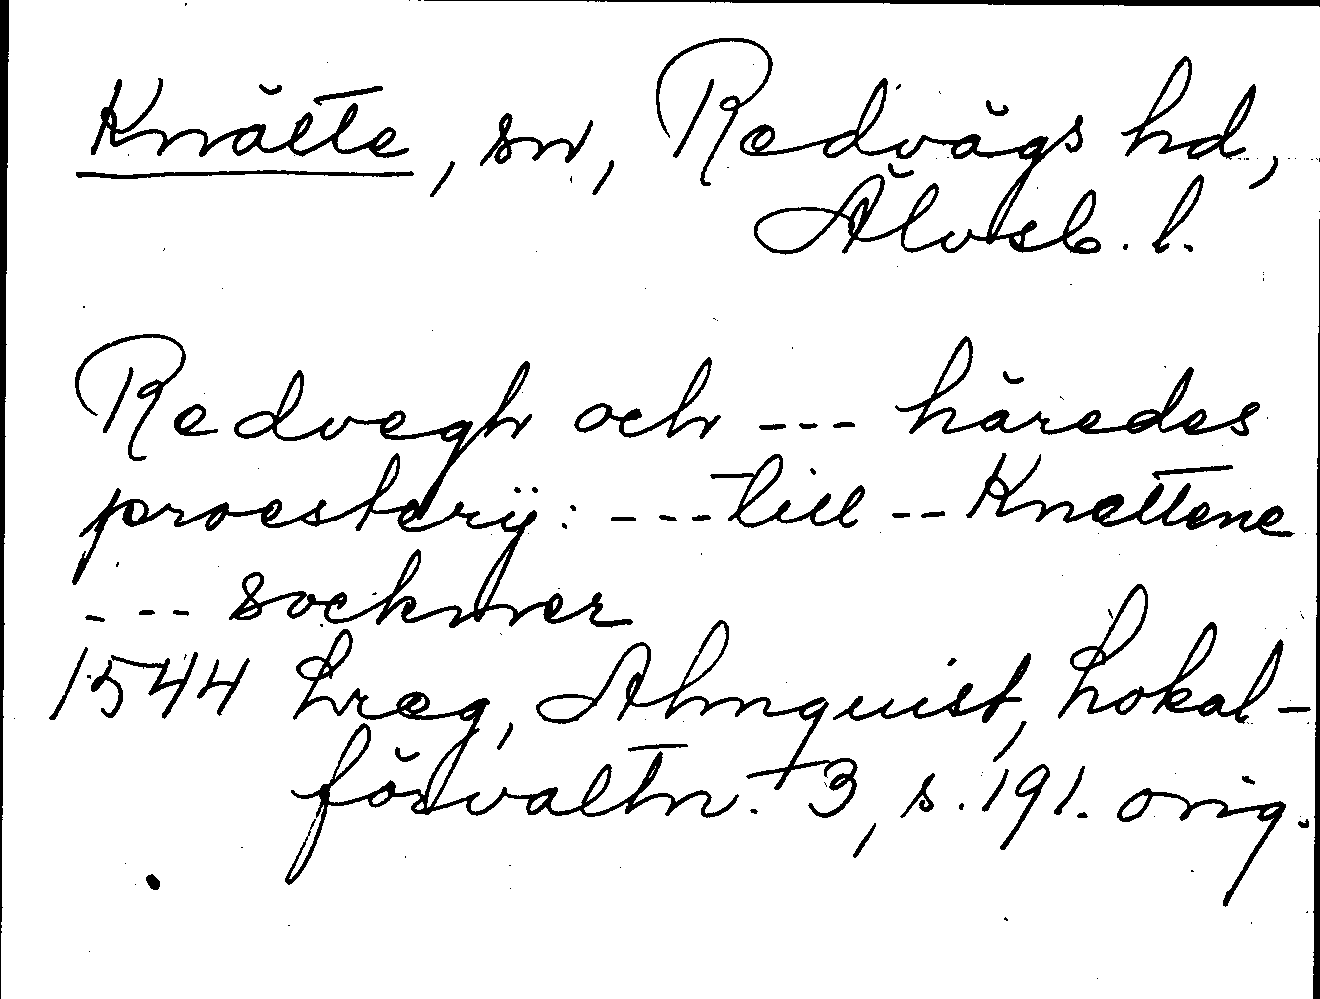 Knätte, sn, Redvägs hd,
Älvsb. l.
Redvegh och --- häredes
proesterij: --- till -- Knættene
--- sockner
1544 Lreg, Almquist, Lokal-
förvaltn. 3, s. 191. orig.